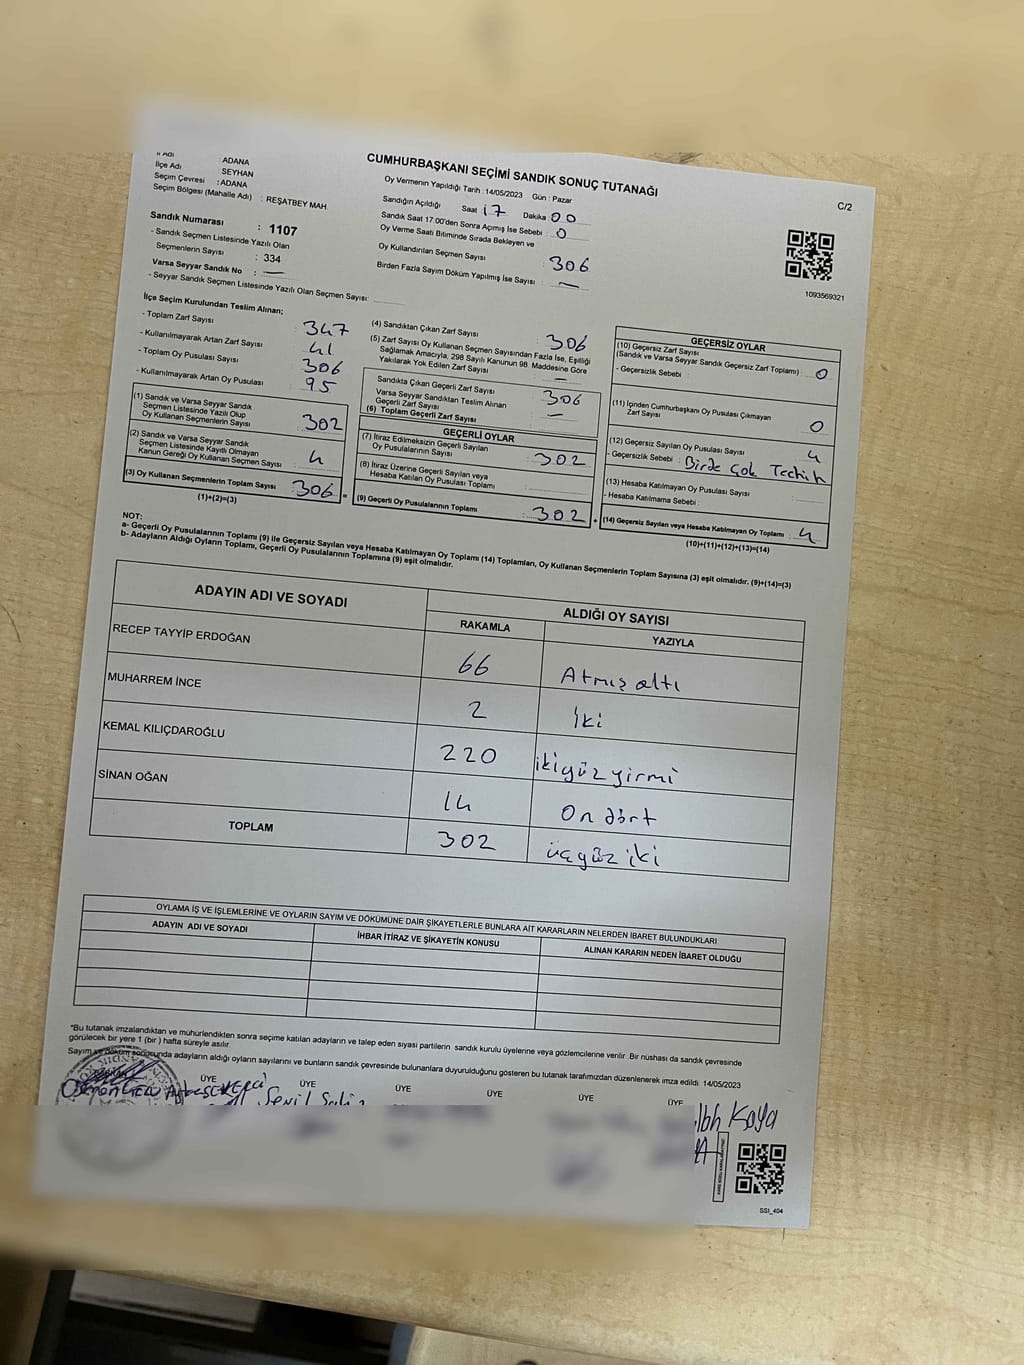 CUMHURBAŞKANI SEÇİMİ SANDIK SONUÇ TUTANAĞI
C/2
İl Adı : ADANA
İlçe Adı : SEYHAN
Seçim Çevresi : ADANA
Seçim Bölgesi (Mahalle Adı) : REŞATBEY MAH.
Sandık Numarası : 1107
- Sandık Seçmen Listesinde Yazılı Olan
Seçmenlerin Sayısı : 334
Varsa Seyyar Sandık No : —
- Seyyar Sandık Seçmen Listesinde Yazılı Olan Seçmen Sayısı:
Oy Vermenin Yapıldığı Tarih : 14/05/2023 Gün : Pazar
Sandığın Açıldığı Saat 17 Dakika 00
Sandık Saat 17.00'den Sonra Açımış İse Sebebi : 0
Oy Verme Saati Bitiminde Sırada Bekleyen ve
Oy Kullandırılan Seçmen Sayısı 306
Birden Fazla Sayım Döküm Yapılmış İse Sayısı : —
1093569321
İlçe Seçim Kurulundan Teslim Alınan;
- Toplam Zarf Sayısı : 347
- Kullanılmayarak Artan Zarf Sayısı : 41
- Toplam Oy Pusulası Sayısı : 306
- Kullanılmayarak Artan Oy Pusulası : 95
(1) Sandık ve Varsa Seyyar Sandık
Seçmen Listesinde Yazılı Olup
Oy Kullanan Seçmenlerin Sayısı : 302
(2) Sandık ve Varsa Seyyar Sandık
Seçmen Listesinde Kayıtlı Olmayan
Kanun Gereği Oy Kullanan Seçmen Sayısı : 4
(3) Oy Kullanan Seçmenlerin Toplam Sayısı : 306
(1)+(2)=(3)
(4) Sandıktan Çıkan Zarf Sayısı : 306
(5) Zarf Sayısı Oy Kullanan Seçmen Sayısından Fazla İse, Eşitliği
Sağlamak Amacıyla, 298 Sayılı Kanunun 98. Maddesine Göre
Yakılarak Yok Edilen Zarf Sayısı : —
Sandıkta Çıkan Geçerli Zarf Sayısı : 306
Varsa Seyyar Sandıktan Teslim Alınan
Geçerli Zarf Sayısı : —
(6) Toplam Geçerli Zarf Sayısı
GEÇERLİ OYLAR
(7) İtiraz Edilmeksizin Geçerli Sayılan
Oy Pusulasının Sayısı : 302
(8) İtiraz Üzerine Geçerli Sayılan veya
Hesaba Katılan Oy Pusulası Toplamı
(9) Geçerli Oy Pusulalarının Toplamı : 302
GEÇERSİZ OYLAR
(10) Geçersiz Zarf Sayısı
(Sandık ve Varsa Seyyar Sandık Geçersiz Zarf Toplamı) : 0
- Geçersizlik Sebebi :
(11) İçinden Cumhurbaşkanı Oy Pusulası Çıkmayan
Zarf Sayısı : 0
(12) Geçersiz Sayılan Oy Pusulası Sayısı : 4
- Geçersizlik Sebebi : Birde Çok Techih
(13) Hesaba Katılmayan Oy Pusulası Sayısı
- Hesaba Katılmama Sebebi :
(14) Geçersiz Sayılan veya Hesaba Katılmayan Oy Toplamı : 4
(10)+(11)+(12)+(13)=(14)
NOT:
a- Geçerli Oy Pusulalarının Toplamı (9) ile Geçersiz Sayılan veya Hesaba Katılmayan Oy Toplamı (14) Toplamları, Oy Kullanan Seçmenlerin Toplam Sayısına (3) eşit olmalıdır. (9)+(14)=(3)
b- Adayların Aldığı Oyların Toplamı, Geçerli Oy Pusulalarının Toplamına (9) eşit olmalıdır.
ADAYIN ADI VE SOYADI
ALDIĞI OY SAYISI
RAKAMLA YAZIYLA
RECEP TAYYİP ERDOĞAN 66 Atmış altı
MUHARREM İNCE 2 İki
KEMAL KILIÇDAROĞLU 220 ikiyüz yirmi
SİNAN OĞAN 14 On dört
TOPLAM 302 üçyüz iki
OYLAMA İŞ VE İŞLEMLERİNE VE OYLARIN SAYIM VE DÖKÜMÜNE DAİR ŞİKAYETLERLE BUNLARA AİT KARARLARIN NELERDEN İBARET BULUNDUKLARI
ADAYIN ADI VE SOYADI İHBAR İTİRAZ VE ŞİKAYETİN KONUSU ALINAN KARARIN NEDEN İBARET OLDUĞU
*Bu tutanak imzalandıktan ve mühürlendikten sonra seçime katılan adayların ve talep eden siyasi partilerin sandık kurulu üyelerine veya gözlemcilerine verilir. Bir nüshası da sandık çevresinde
görülecek bir yere 1 (bir ) hafta süreyle asılır.
Sayım ve döküm sonucunda adayların aldığı oyların sayılarını ve bunların sandık çevresinde bulunanlara duyurulduğunu gösteren bu tutanak tarafımızdan düzenlenerek imza edildi. 14/05/2023
ÜYE ÜYE ÜYE ÜYE ÜYE ÜYE
Kaya
SSI_404